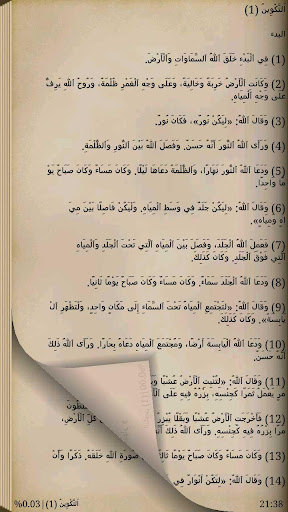 اَلتَّكْوِينُ (1)
البدء
(1) فِي الْبَدْءِ خَلَقَ اللهُ السَّمَاوَاتِ وَالأَرْضَ.
(2) وَكَانَتِ الأَرْضُ خَرِبَةً وَخَالِيَةً، وَعَلَى وَجْهِ الْغَمْرِ ظُلْمَةٌ، وَرُوحُ اللهِ يَرِفُّ
عَلَى وَجْهِ الْمِيَاهِ.
(3) وَقَالَ اللهُ: «لِيَكُنْ نُورٌ»، فَكَانَ نُورٌ.
(4) وَرَأَى اللهُ النُّورَ أَنَّهُ حَسَنٌ. وَفَصَلَ اللهُ بَيْنَ النُّورِ وَالظُّلْمَةِ.
(5) وَدَعَا اللهُ النُّورَ نَهَارًا، وَالظُّلْمَةُ دَعَاهَا لَيْلاً. وَكَانَ مَسَاءٌ وَكَانَ صَبَاحٌ يَوْ
مًا وَاحِدًا.
(6) وَقَالَ اللهُ: «لِيَكُنْ جَلَدٌ فِي وَسَطِ الْمِيَاهِ. وَلْيَكُنْ فَاصِلاً بَيْنَ مِيَ
اهٍ وَمِيَاهٍ».
(7) فَعَمِلَ اللهُ الْجَلَدَ، وَفَصَلَ بَيْنَ الْمِيَاهِ الَّتِي تَحْتَ الْجَلَدِ وَالْمِيَاهِ
الَّتِي فَوْقَ الْجَلَدِ. وَكَانَ كَذلِكَ.
(8) وَدَعَا اللهُ الْجَلَدَ سَمَاءً. وَكَانَ مَسَاءٌ وَكَانَ صَبَاحٌ يَوْمًا ثَانِيًا.
(9) وَقَالَ اللهُ: «لِتَجْتَمِعِ الْمِيَاهُ تَحْتَ السَّمَاءِ إِلَى مَكَانٍ وَاحِدٍ، وَلْتَظْهَرِ الْ
يَابِسَةُ». وَكَانَ كَذلِكَ.
(10) وَدَعَا اللهُ الْيَابِسَةَ أَرْضًا، وَمُجْتَمَعَ الْمِيَاهِ دَعَاهُ بِحَارًا. وَرَأَى اللهُ ذلِكَ
أَنَّهُ حَسَنٌ.
(11) وَقَالَ اللهُ: «لِتُنْبِتِ الأَرْضُ عُشْبًا
مَرٍ يَعْمَلُ ثَمَرًا كَجِنْسِهِ، بِزْرُهُ فِيهِ عَلَى
(12) فَأَخْرَجَتِ الأَرْضُ عُشْبًا وَبَقْلاً يُبْزِرُ
مَرًا بِزْرُهُ فِيهِ كَجِنْسِهِ. وَرَأَى اللهُ ذلِكَ
(13) وَكَانَ مَسَاءٌ وَكَانَ صَبَاحٌ يَوْمًا
(14) وَقَالَ اللهُ: «لِتَكُنْ أَنْوَارٌ فِي
%0.03 | اَلتَّكْوِينُ (1)
21:38